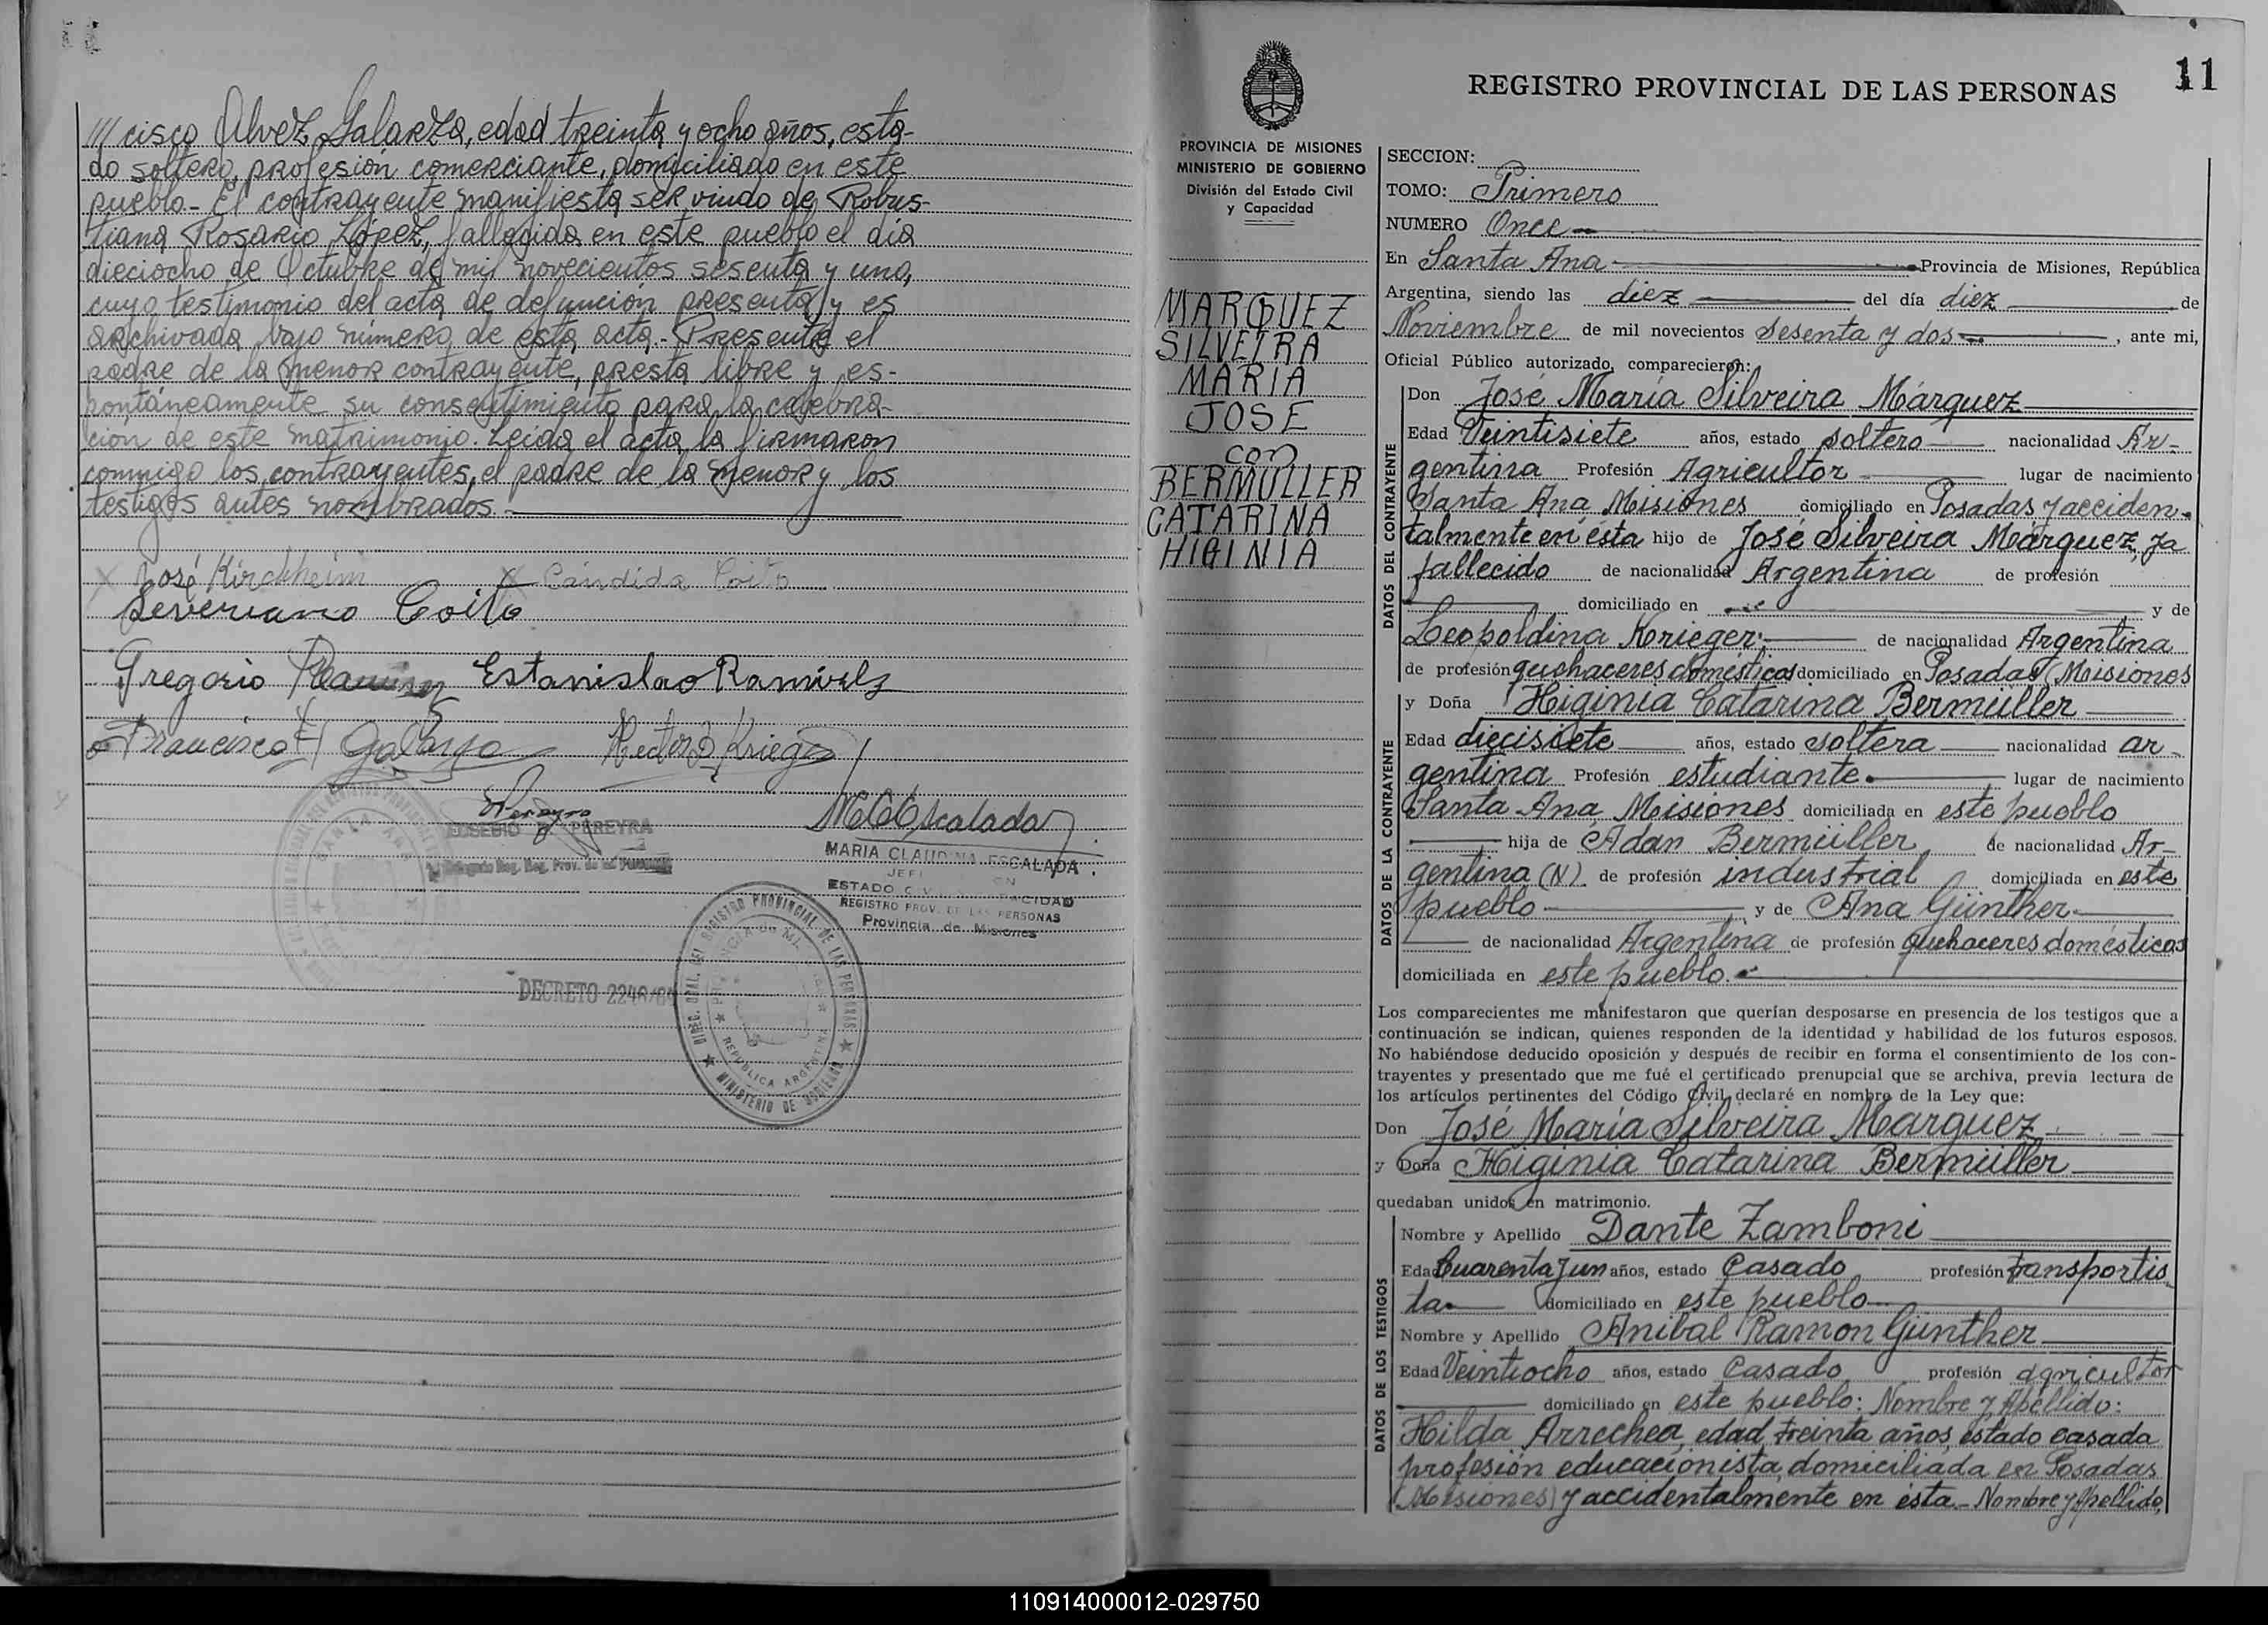 /// cisco Alvez Galarza, edad treinta y ocho años, esta-
do soltero, profesión comerciante, domiciliado en este
pueblo.- El contrayente manifiesta ser viudo de Robus-
tiana Rosario López, fallecida en este pueblo el día
dieciocho de Octubre de mil novecientos sesenta y uno,
cuyo testimonio del acta de defunción presenta y es
archivada bajo número de esta acta.- Presente el
padre de la menor contrayente, presta libre y es-
pontáneamente su consentimiento para la celebra-
ción de este matrimonio. Leída el acta la firmaron
conmigo los contrayentes, el padre de la menor y los
testigos antes nombrados.-
X José Kirchheim X Cándida Coito
Severiano Coito
Gregorio Ramirez Estanislao Ramirez
Francisco A Galarza Hector Krieger
Pereyra
EUSEBIO PEREYRA
MCEscalada
MARIA CLAUDINA ESCALADA
ESTADO CIVIL CAPACIDAD
REGISTRO PROV. DE LAS PERSONAS
Provincia de Misiones
DECRETO 2246/84
DIREC. GRAL. DEL REGISTRO PROVINCIAL DE LAS PERSONAS
MINISTERIO DE GOBIERNO
REPUBLICA ARGENTINA
11
REGISTRO PROVINCIAL DE LAS PERSONAS
PROVINCIA DE MISIONES
MINISTERIO DE GOBIERNO
División del Estado Civil
y Capacidad
MARQUEZ
SILVEIRA
MARIA
JOSE
con
BERMULLER
CATARINA
HIGINIA
SECCION:
TOMO: Primero
NUMERO Once
En Santa Ana Provincia de Misiones, República
Argentina, siendo las diez del día diez de
Noviembre de mil novecientos Sesenta y dos, ante mi,
Oficial Público autorizado, comparecieron:
DATOS DEL CONTRAYENTE
Don José María Silveira Márquez
Edad Veintisiete años, estado soltero nacionalidad Ar-
gentina Profesión Agricultor lugar de nacimiento
Santa Ana Misiones domiciliado en Posadas y acciden-
talmente en ésta hijo de José Silveira Márquez, ya
fallecido de nacionalidad Argentina de profesión
domiciliado en y de
Leopoldina Korieger de nacionalidad Argentina
de profesión quehaceres domésticos domiciliado en Posadas (Misiones
DATOS DE LA CONTRAYENTE
y Doña Higinia Catarina Bermüller
Edad diecisiete años, estado soltera nacionalidad ar-
gentina Profesión estudiante lugar de nacimiento
Santa Ana Misiones domiciliada en este pueblo
hija de Adan Bermüller de nacionalidad Ar-
gentina (N) de profesión industrial domiciliada en este
pueblo y de Ana Günther
de nacionalidad Argentina de profesión quehaceres domésticos
domiciliada en este pueblo.
Los comparecientes me manifestaron que querían desposarse en presencia de los testigos que a
continuación se indican, quienes responden de la identidad y habilidad de los futuros esposos.
No habiéndose deducido oposición y después de recibir en forma el consentimiento de los con-
trayentes y presentado que me fué el certificado prenupcial que se archiva, previa lectura de
los artículos pertinentes del Código Civil, declaré en nombre de la Ley que:
Don José María Silveira Marquez
y Doña Higinia Catarina Bermüller
quedaban unidos en matrimonio.
DATOS DE LOS TESTIGOS
Nombre y Apellido Dante Zamboni
Edad Cuarenta y un años, estado Casado profesión transportis-
ta domiciliado en este pueblo
Nombre y Apellido Anibal Ramon Günther
Edad Veintiocho años, estado Casado profesión agricultor
domiciliado en este pueblo: Nombre y Apellido:
Hilda Arrechea, edad treinta años, estado casada
profesión educacionista, domiciliada en Posadas
(Misiones) y accidentalmente en ésta.- Nombre y Apellido,
110914000012-029750